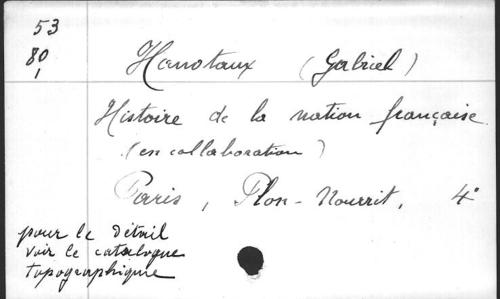 53
80
1
Hanotaux (Gabriel)
Histoire de la nation française
(en collaboration)
Paris, Plon-Nourrit, 4°
pour le détail
voir le catalogue
topographique